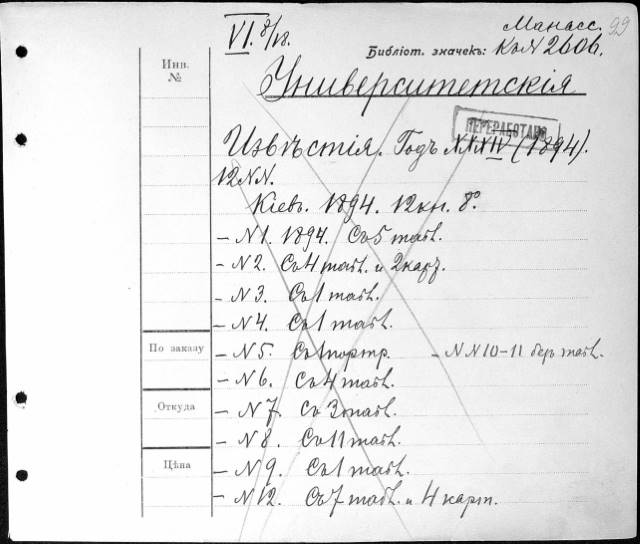 VI. 8/18.
Манасс. 99
Библіот. значекъ: Къ N 2606.
Инв.
№
Университетскія
ПЕРЕРАБОТАНО
Извѣстія. Годъ XXXIV (1894).
12 N.N.
Кіевъ. 1894. 12 кн. 8º.
- N 1. 1894. Съ 5 табл.
- N 2. Съ 4 табл. и 2 карт.
- N 3. Съ 1 табл.
- N 4. Съ 1 табл.
По заказу
- N 5. Съ 1 портр. - N N 10-11 безъ табл.
- N 6. Съ 4 табл.
Откуда
- N 7. Съ 3 табл.
- N 8. Съ 11 табл.
Цѣна
- N 9. Съ 1 табл.
- N 12. Съ 7 табл. и 4 карт.